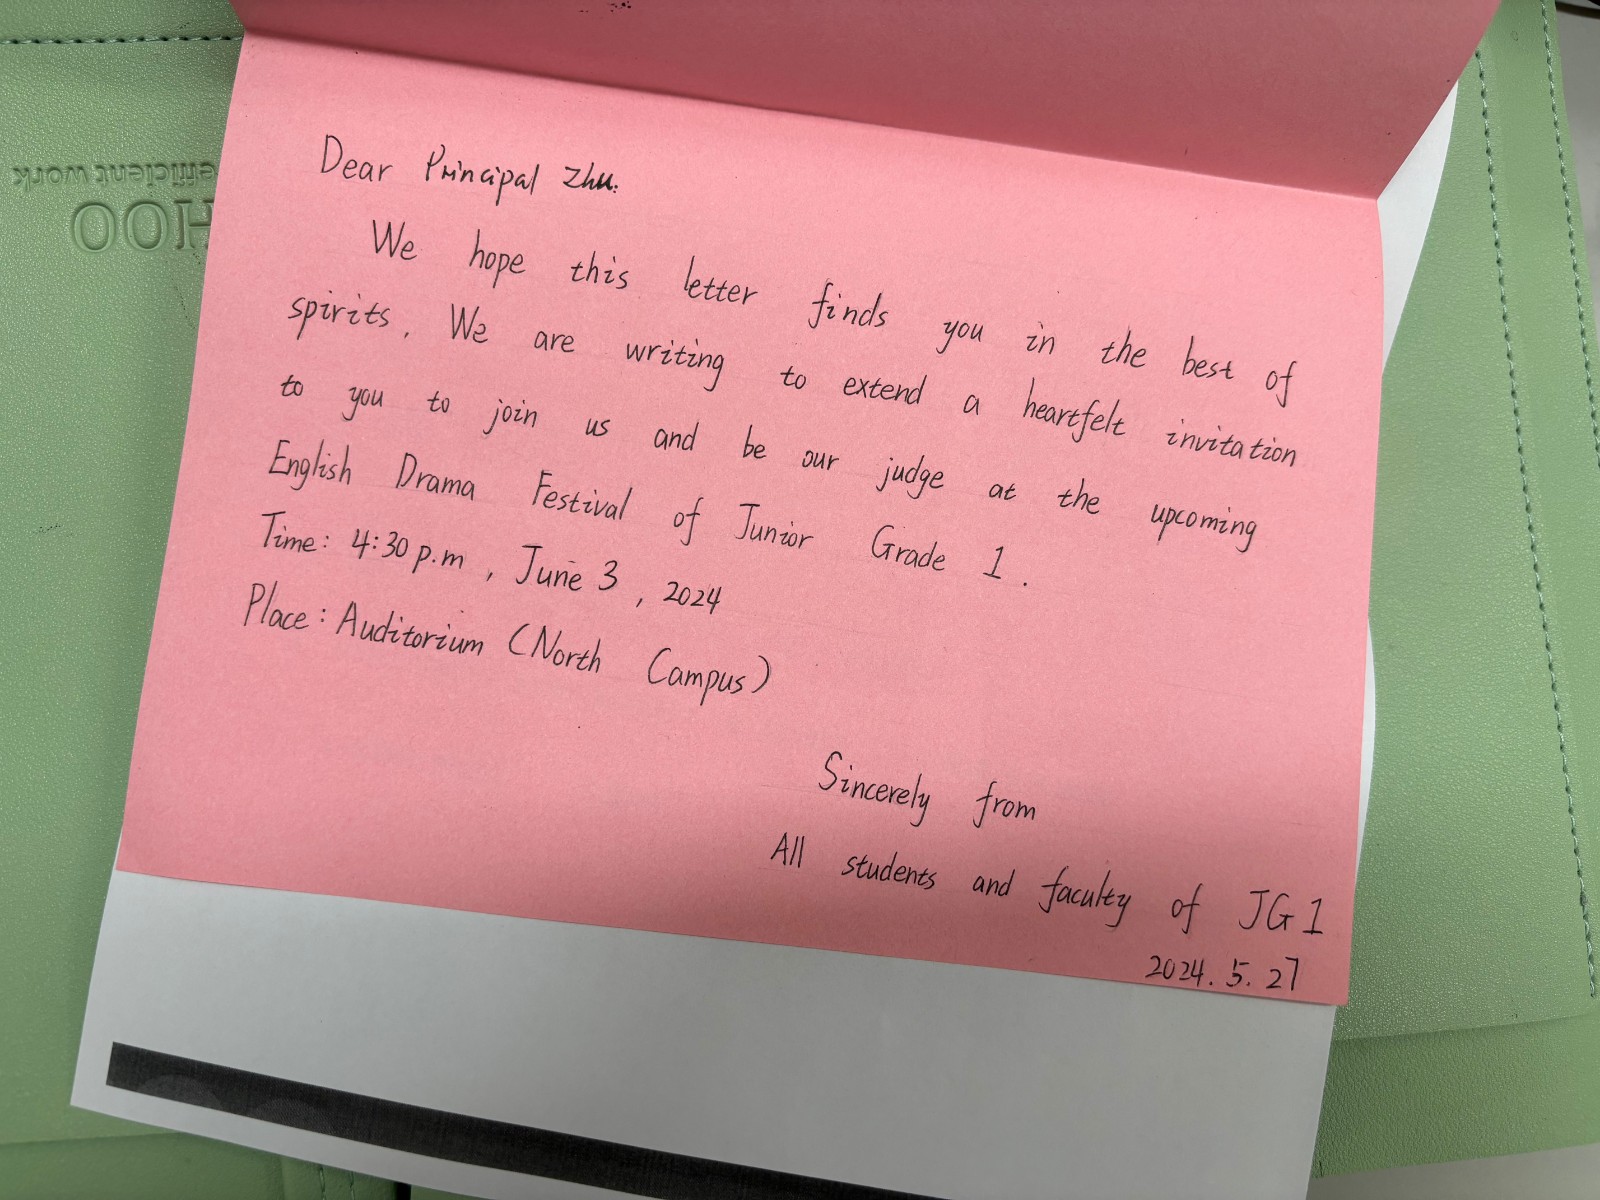 Dear Principal Zhu.
We hope this letter finds you in the best of
spirits. We are writing to extend a heartfelt invitation
to you to join us and be our judge at the upcoming
English Drama Festival of Junior Grade 1.
Time: 4:30 p.m, June 3, 2024
Place: Auditorium (North Campus)
Sincerely from
All students and faculty of JG1
2024.5.27
efficient work
HOO